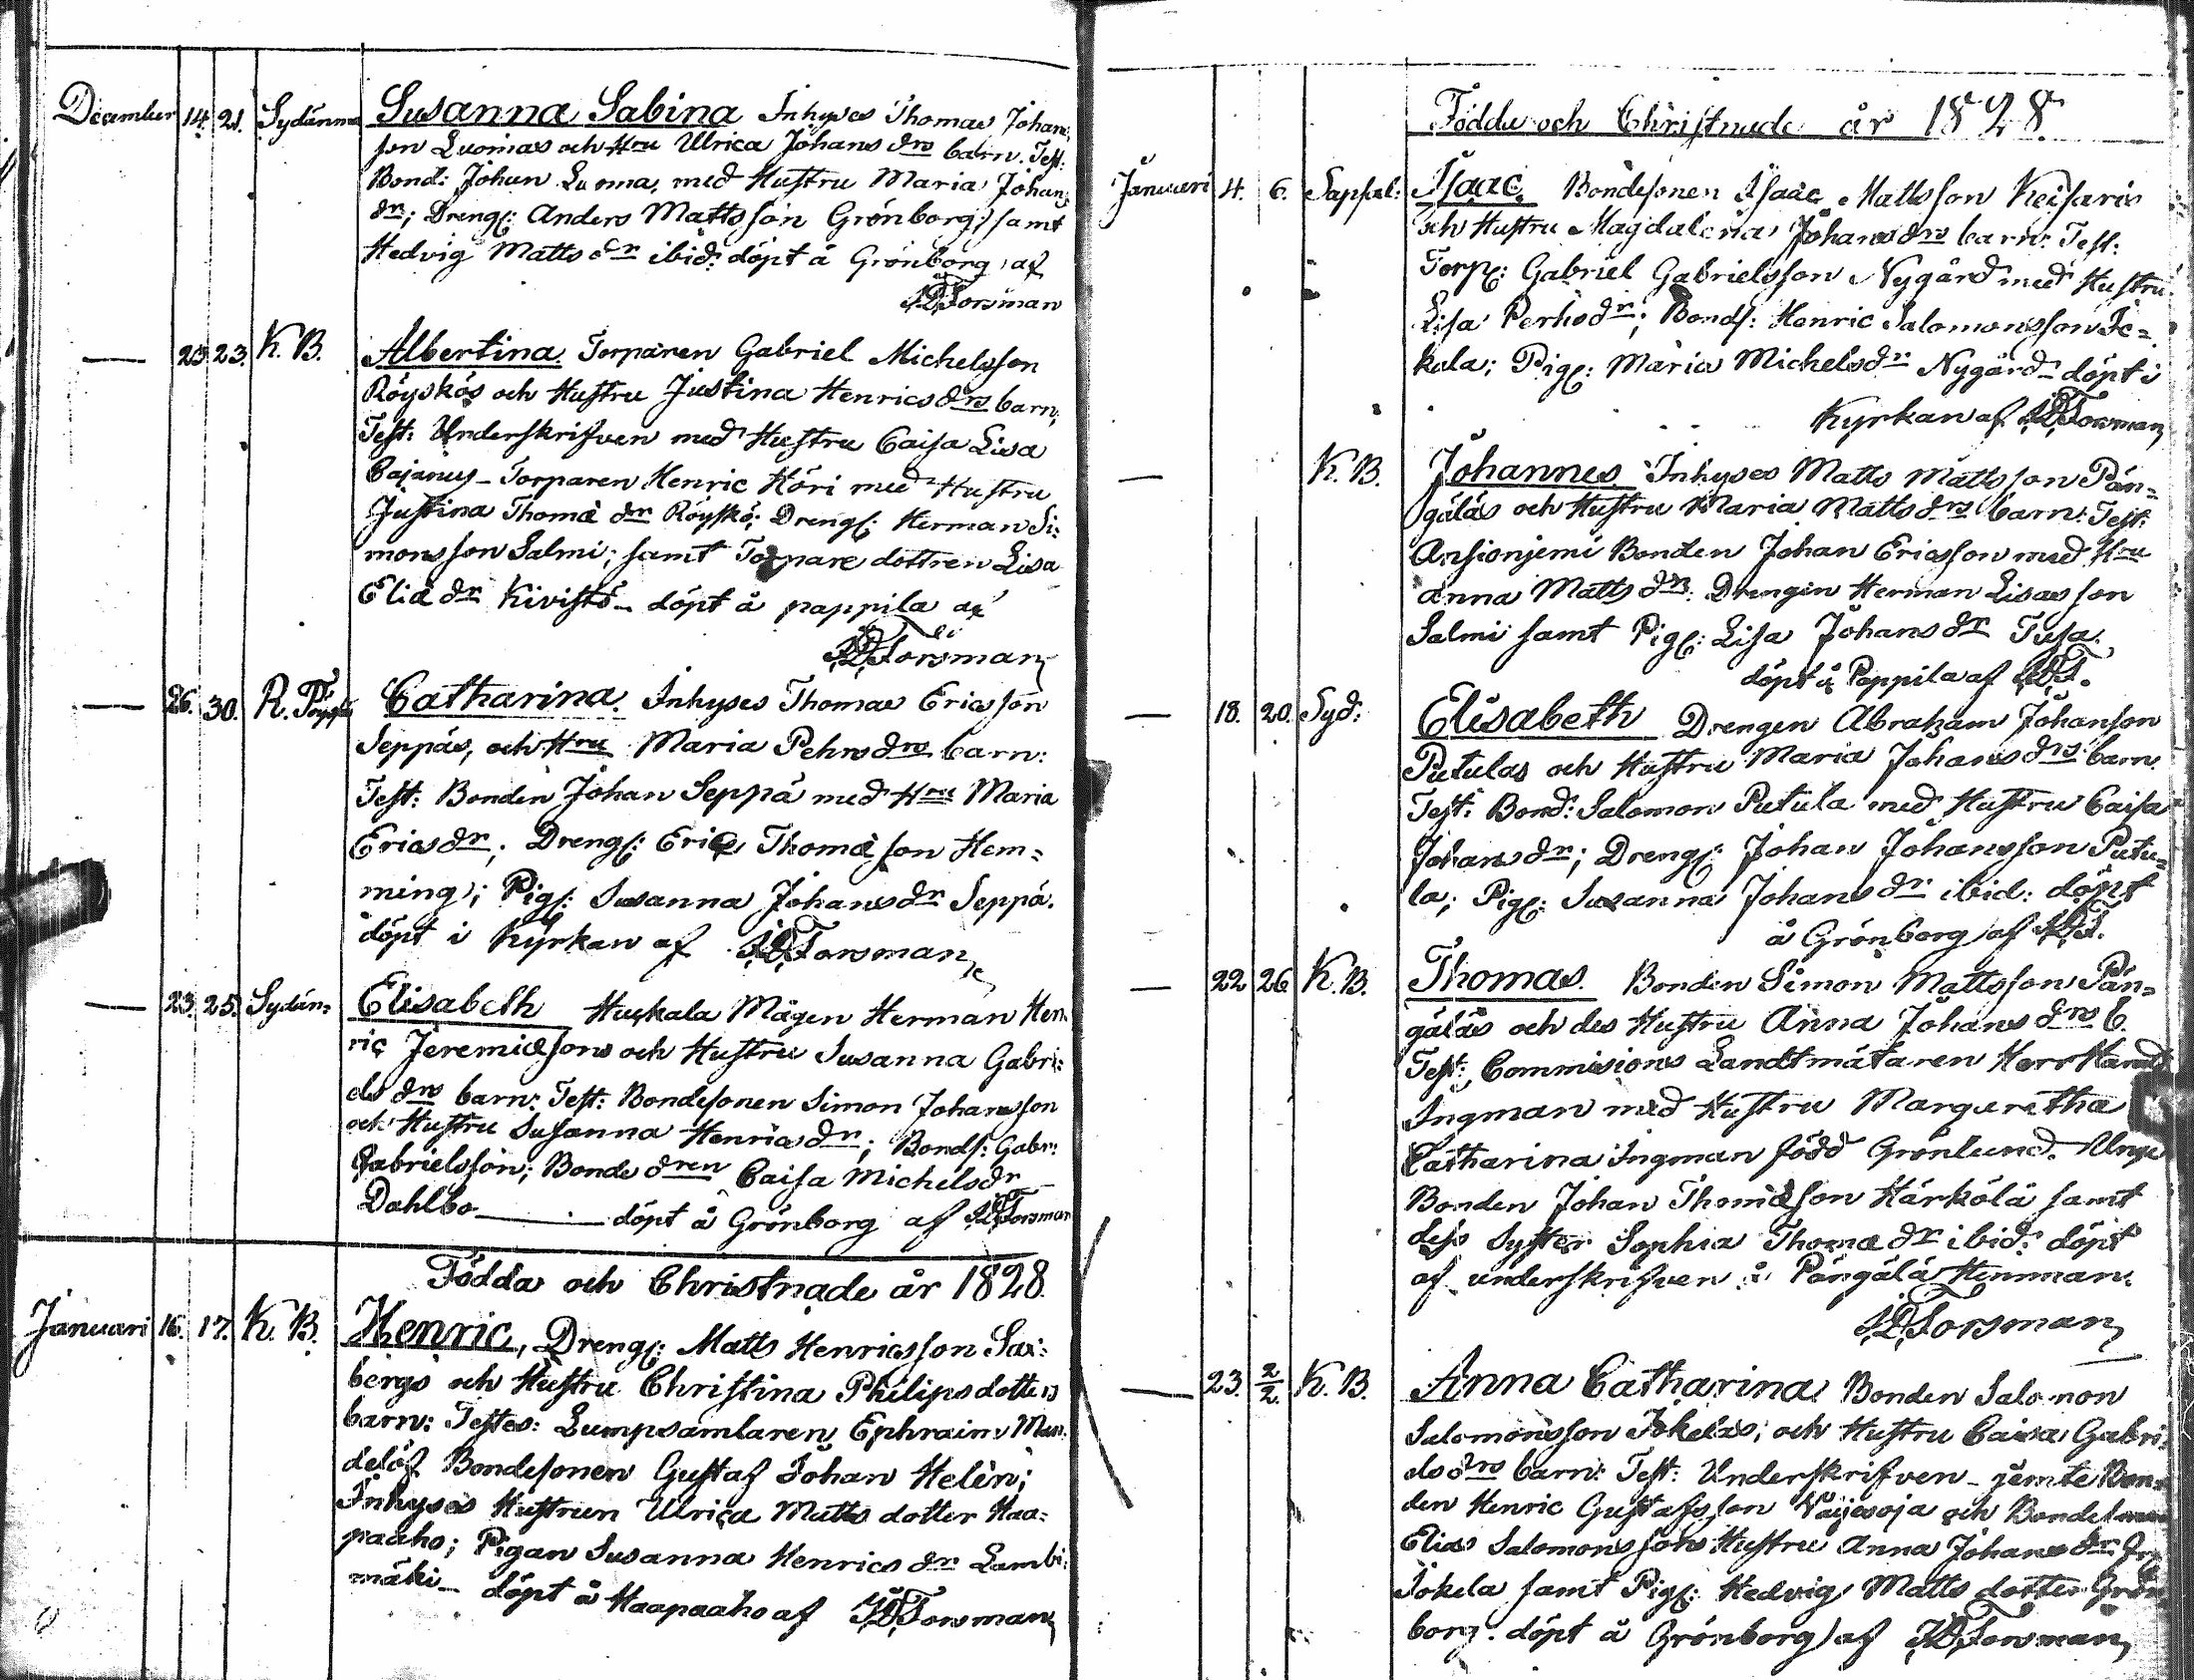 December 14. 21. Sydänma Susanna Sabina Inhyses Thomas Johans
son Luomas och Hru Ulrica Johans drs barn. Test:
Bond: Johan Luoma, med Hustru Maria Johans
dr; Drengn: Anders Mattsson Grönborg, samt
Hedvig Matts dr ibid: döpt å Grönborg af
J.D. Forsman
— 23. 23. K. B. Albertina. Torparen Gabriel Michelsson
Röyskös och Hustru Justina Henrics drs barn,
Test: Underskrifven med Hustru Caisa Lisa
Cajanus – Torparen Henric Höri med Hustru
Justina Thomæ dr Röyskö; Drengn: Herman Si:
monsson Salmi; samt Torpare dottren Lisa
Eliæ dr Kivistö – döpt å pappila af
J.D. Forsman
— 26. 30. R. Catharina. Inhyses Thomas Ericsson
Seppäs, och Hru Maria Pehrs drs barn:
Test: Bonden Johan Seppä med Hru Maria
Erics dr; Drengn: Eric Thomæson Hem=
ming; Pign: Susanna Johans dr Seppä.
döpt i Kyrkan af J.D. Forsman
— 23. 25. Sydän= Elisabeth Huskala Mågen Herman Hen
ric Jeremiæsons och Hustru Susanna Gabri:
els drs barn: Test: Bondesonen Simon Johansson
och Hustru Susanna Henrics dr; Bonds: Gabr:
Gabrielsson; Bonde dren Caisa Michels dr
Dahlbo — döpt å Grönborg af J.D. Forsman
Födda och Christnade år 1828.
Januari 16. 17. K. B. Henric, Drengn: Matts Henricsson Sax:
bergs och Hustru Christina Philips dotters
barn: Testes: Lumpsamlaren Ephraim
Bondesonen Gustaf Johan Helèn;
Inhyses Hustrun Ulrica Matts dotter Haa=
paaho; Pigan Susanna Henrics dr Lambi:
mäki – döpt å Haapaaho af J.D. Forsman
Födda och Christnade år 1828.
Januari 4. 6. Sapsal: Isaac. Bondesonen Isaac Mattsson Keisaris
och Hustru Magdalena Johans drs barn: Test:
Torpn: Gabriel Gabrielsson Nygård med Hustru
Lisa Pehrs dr; Bonds: Henric Salomonsson Jo=
kela; Pign: Maria Michels dr Nygård – döpt i
Kyrkan af J.D. Forsman
— K. B. Johannes Inhyses Matts Mattsson Pän=
gäläs och Hustru Maria Matts drs barn: Test:
Ansionjemi Bonden Johan Ericsson med Hru
Anna Matts dr: Drengen Herman Lisasson
Salmi samt Pign: Lisa Johans dr Tusa,
döpt å Pappila af J.D.F.
— 18. 20. Syd: Elisabeth Drengen Abraham Johanson
Putulas och Hustru Maria Johans drs barn.
Test: Bond: Salomon Putula med Hustru Caisa
Johans dr; Drengn: Johan Johansson Putu=
la; Pign: Susanna Johans dr ibid: döpt
å Grönborg af J.D.F.
— 22 26 K. B. Thomas. Bonden Simon Mattsson Pän=
gäläs och des Hustru Anna Johans drs b.
Test: Commisions Landtmätaren Herr
Ingman med Hustru Margaretha
Catharina Ingman född Grönlund. Unge
Bonden Johan Thomæson Härkölä samt
dess Syster Sophia Thomæ dr ibid: döpt
af underskrifven å Pängälä Hemman.
J.D. Forsman
— 23. 2/2. K. B. Anna Catharina. Bonden Salomon
Salomonsson Jokelas; och Hustru Caisa Gabri:
els drs barn: Test: Underskrifven – jemte Bon=
den Henric Gustafsson Väijesoja och
Elias Salomonssons Hustru Anna Johans dr
Jokela samt Pign: Hedvig Matts dotter Grön
borg. döpt å Grönborg af J.D. Forsman